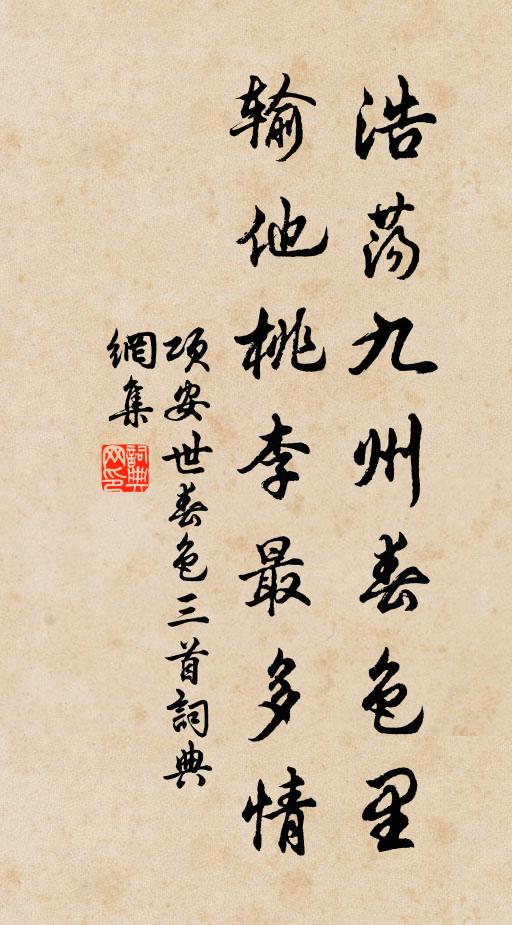 浩荡九州春色里
输他桃李最多情
项安世春色三首詞典
網集
詞典
网印